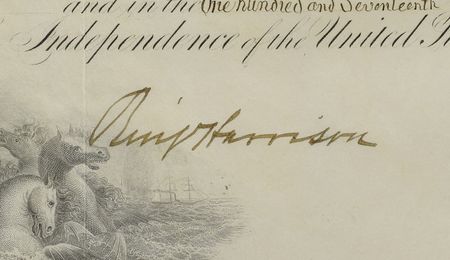 and in the One hundred and Seventeenth
Independence of the United
Benj Harrison